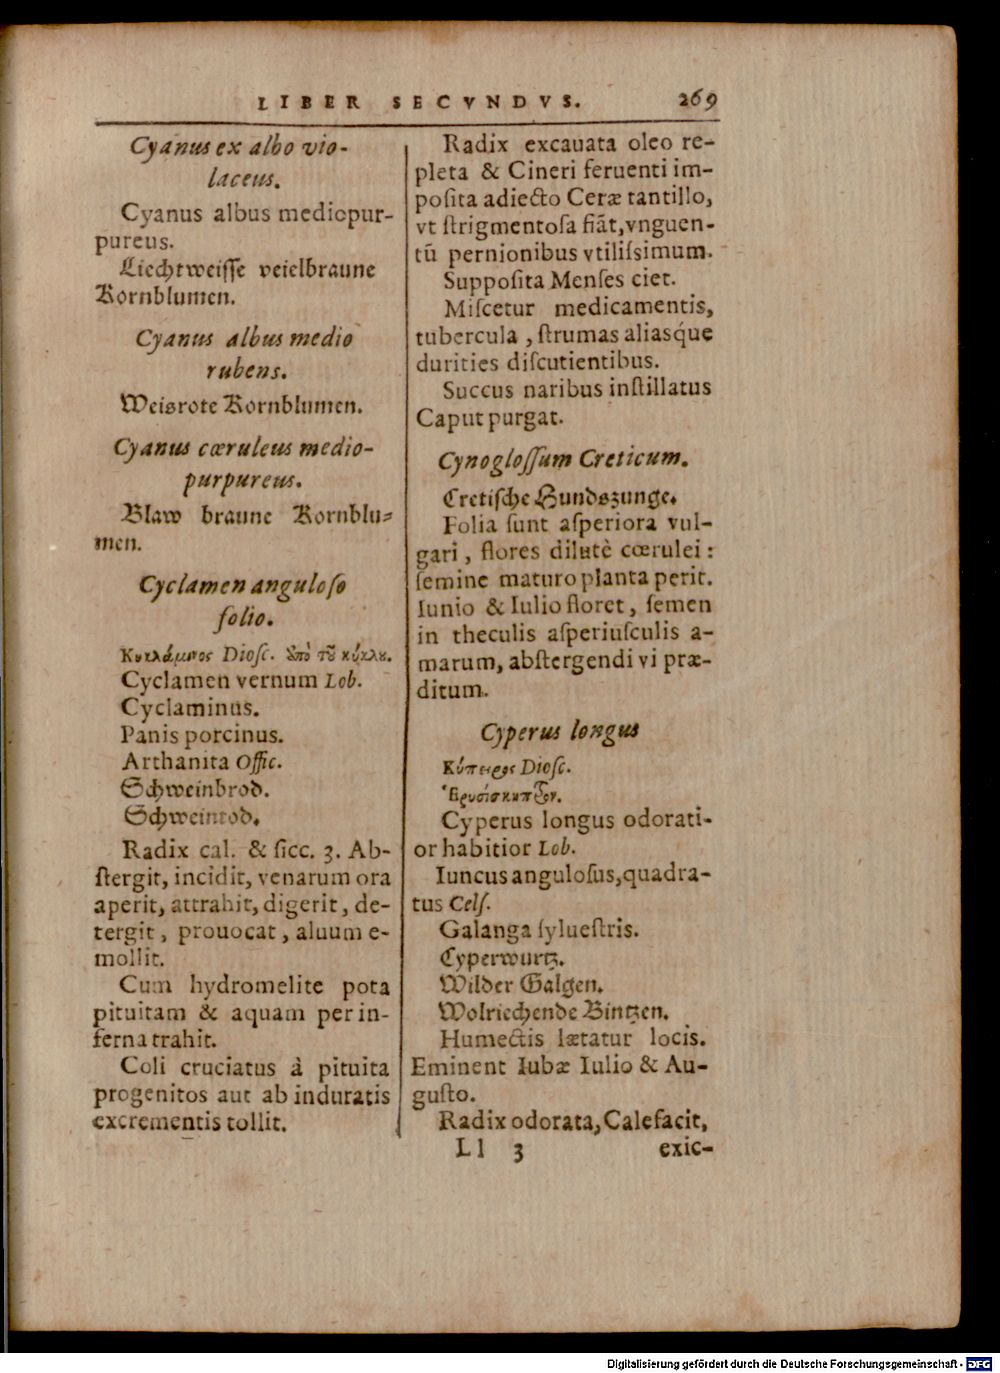 LIBER SECVNDVS. 269
Cyanus ex albo vio-
laceus.
Cyanus albus mediopur-
pureus.
Liechtweiſſe veielbraune
Kornblumen.
Cyanus albus medio
rubens.
Weisrote Kornblumen.
Cyanus cœruleus medio-
purpureus.
Blaw braune Kornblu⸗
men.
Cyclamen anguloſo
folio.
Κυκλάμινος Dioſc. ὑπὸ τοῦ κύκλου.
Cyclamen vernum Lob.
Cyclaminus.
Panis porcinus.
Arthanita Offic.
Schweinbrod.
Schweintod.
Radix cal. & ſicc. 3. Ab-
ſtergit, incidit, venarum ora
aperit, attrahit, digerit, de-
tergit, prouocat, aluum e-
mollit.
Cum hydromelite pota
pituitam & aquam per in-
ferna trahit.
Coli cruciatus à pituita
progenitos aut ab induratis
excrementis tollit.
Radix excauata oleo re-
pleta & Cineri feruenti im-
poſita adiecto Ceræ tantillo,
vt ſtrigmentoſa fiāt, vnguen-
tū pernionibus vtiliſsimum.
Suppoſita Menſes ciet.
Miſcetur medicamentis,
tubercula, ſtrumas aliasq́ue
durities diſcutientibus.
Succus naribus inſtillatus
Caput purgat.
Cynogloſſum Creticum.
Cretiſche Hundszunge.
Folia ſunt aſperiora vul-
gari, flores dilutè cœrulei:
ſemine maturo planta perit.
Iunio & Iulio floret, ſemen
in theculis aſperiuſculis a-
marum, abſtergendi vi præ-
ditum.
Cyperus longus
Κύπειρος Dioſc.
Ἐρυσίσκηπτρον.
Cyperus longus odorati-
or habitior Lob.
Iuncus anguloſus, quadra-
tus Celſ.
Galanga ſylueſtris.
Cyperwurtz.
Wilder Galgen.
Wolriechende Bintzen.
Humectis lætatur locis.
Eminent Iubæ Iulio & Au-
guſto.
Radix odorata, Calefacit,
Ll 3 exic-
Digitalisierung gefördert durch die Deutsche Forschungsgemeinschaft - DFG